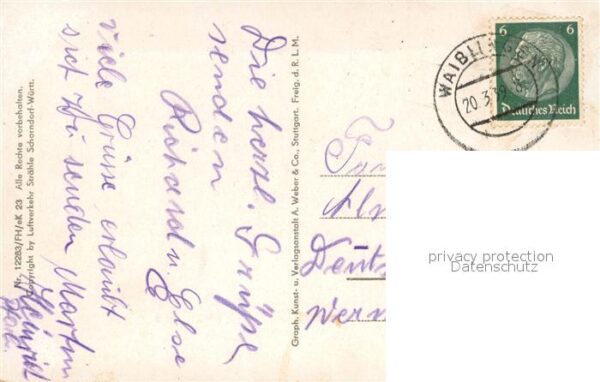 Nr. 12283/FH/eK 23 Alle Rechte vorbehalten.
Copyright by Luftverkehr Strähle Schorndorf-Württ.
Die herzl. Grüße
senden
Richard u. Else
Viele Grüsse erlaubt
sich zu senden Martin
Heinrich
Graph. Kunst- u. Verlagsanstalt A. Weber & Co., Stuttgart. Freig. d. R. L. M.
6 6
Deutsches Reich
WAIBLINGEN
20.3.39
privacy protection
Datenschutz